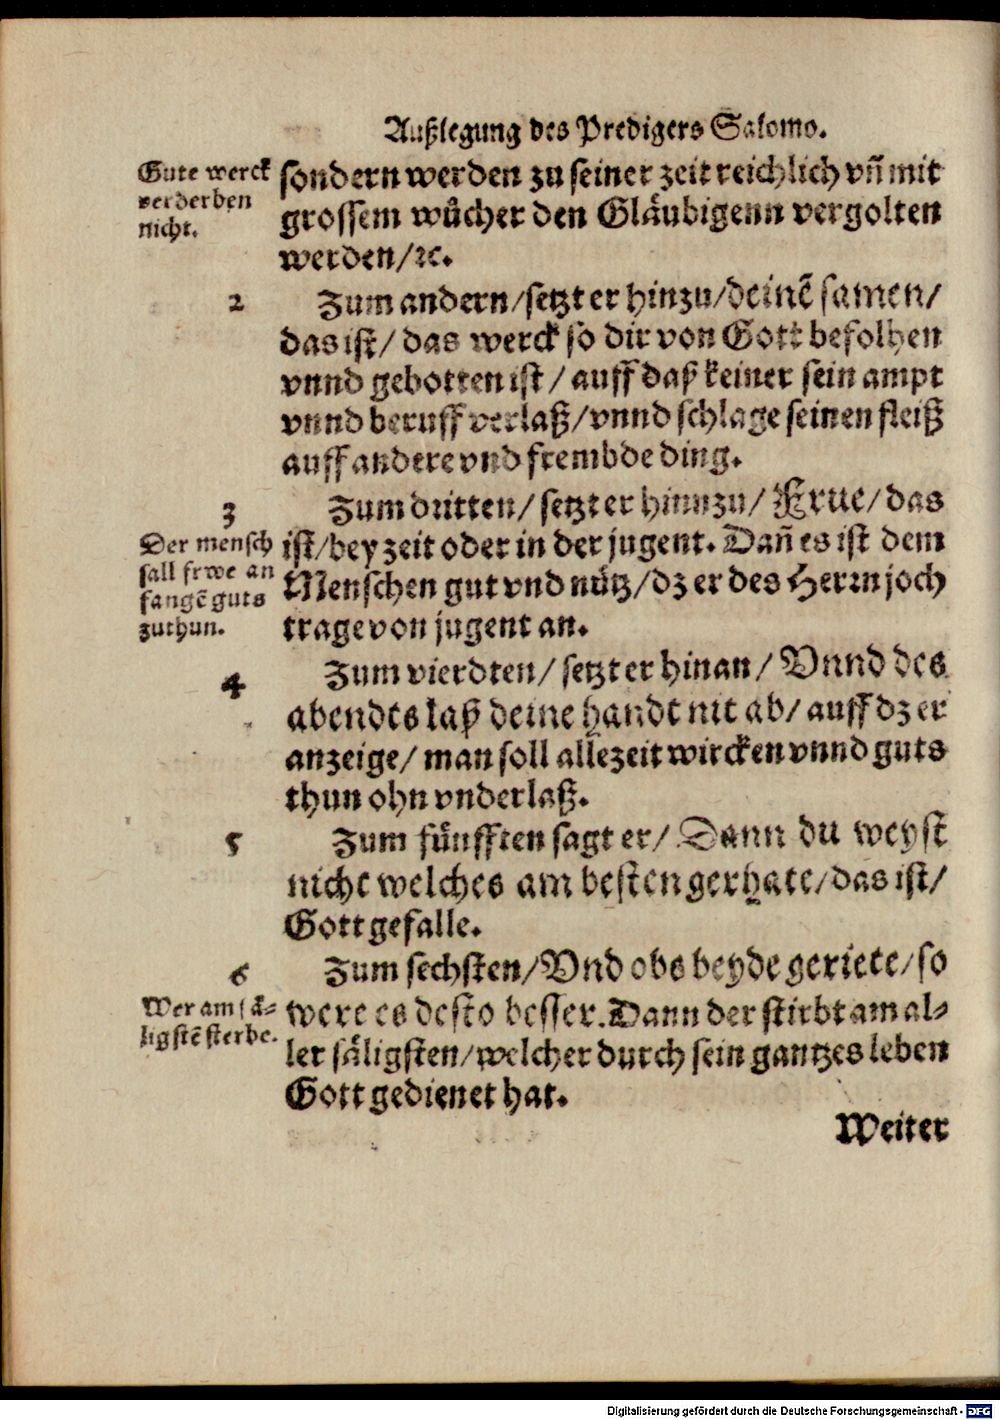 Außlegung des Predigers Salomo.
Gute werck
verderben
nicht.
sondern werden zu seiner zeit reichlich vñ mit
grossem wůcher den Gläubigenn vergolten
werden/ꝛc.
2
Zum andern/setzt er hinzu/deinẽ samen/
das ist/ das werck so dir von Gott befolhen
vnnd gebotten ist/ auff daß keiner sein ampt
vnnd beruff verlaß/vnnd schlage seinen fleiß
auff andere vnd frembde ding.
3
Zum dritten/ setzt er hinnzu/ Frue/das
Der mensch
sall frwe an
fangẽ guts
zuthun.
ist/bey zeit oder in der jugent. Dañ es ist dem
Menschen gut vnd nütz/dz er des Herrn joch
trage von jugent an.
4
Zum vierdten/ setzt er hinan/ Vnnd des
abendes laß deine handt nit ab/ auff dz er
anzeige/ man soll allezeit wircken vnnd guts
thun ohn vnderlaß.
5
Zum fünfften sagt er/ Dann du weyst
nicht welches am besten gerhate/das ist/
Gott gefalle.
6
Zum sechsten/Vnd obs beyde geriete/so
Wer am sä-
ligstẽ sterbe.
were es desto besser. Dann der stirbt am al-
ler säligsten/welcher durch sein gantzes leben
Gott gedienet hat.
Weiter
Digitalisierung gefördert durch die Deutsche Forschungsgemeinschaft - DFG